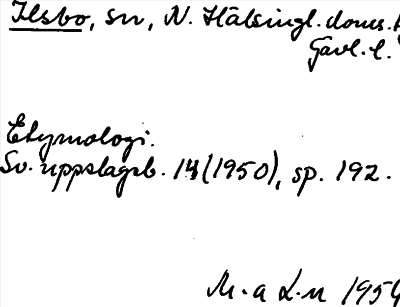 Ilsbo, sn, N. Hälsingl. doms.
Gävl. l.
Etymologi.
Sv. uppslagsb. 14 (1950), sp. 192.
M. a L-n 1954